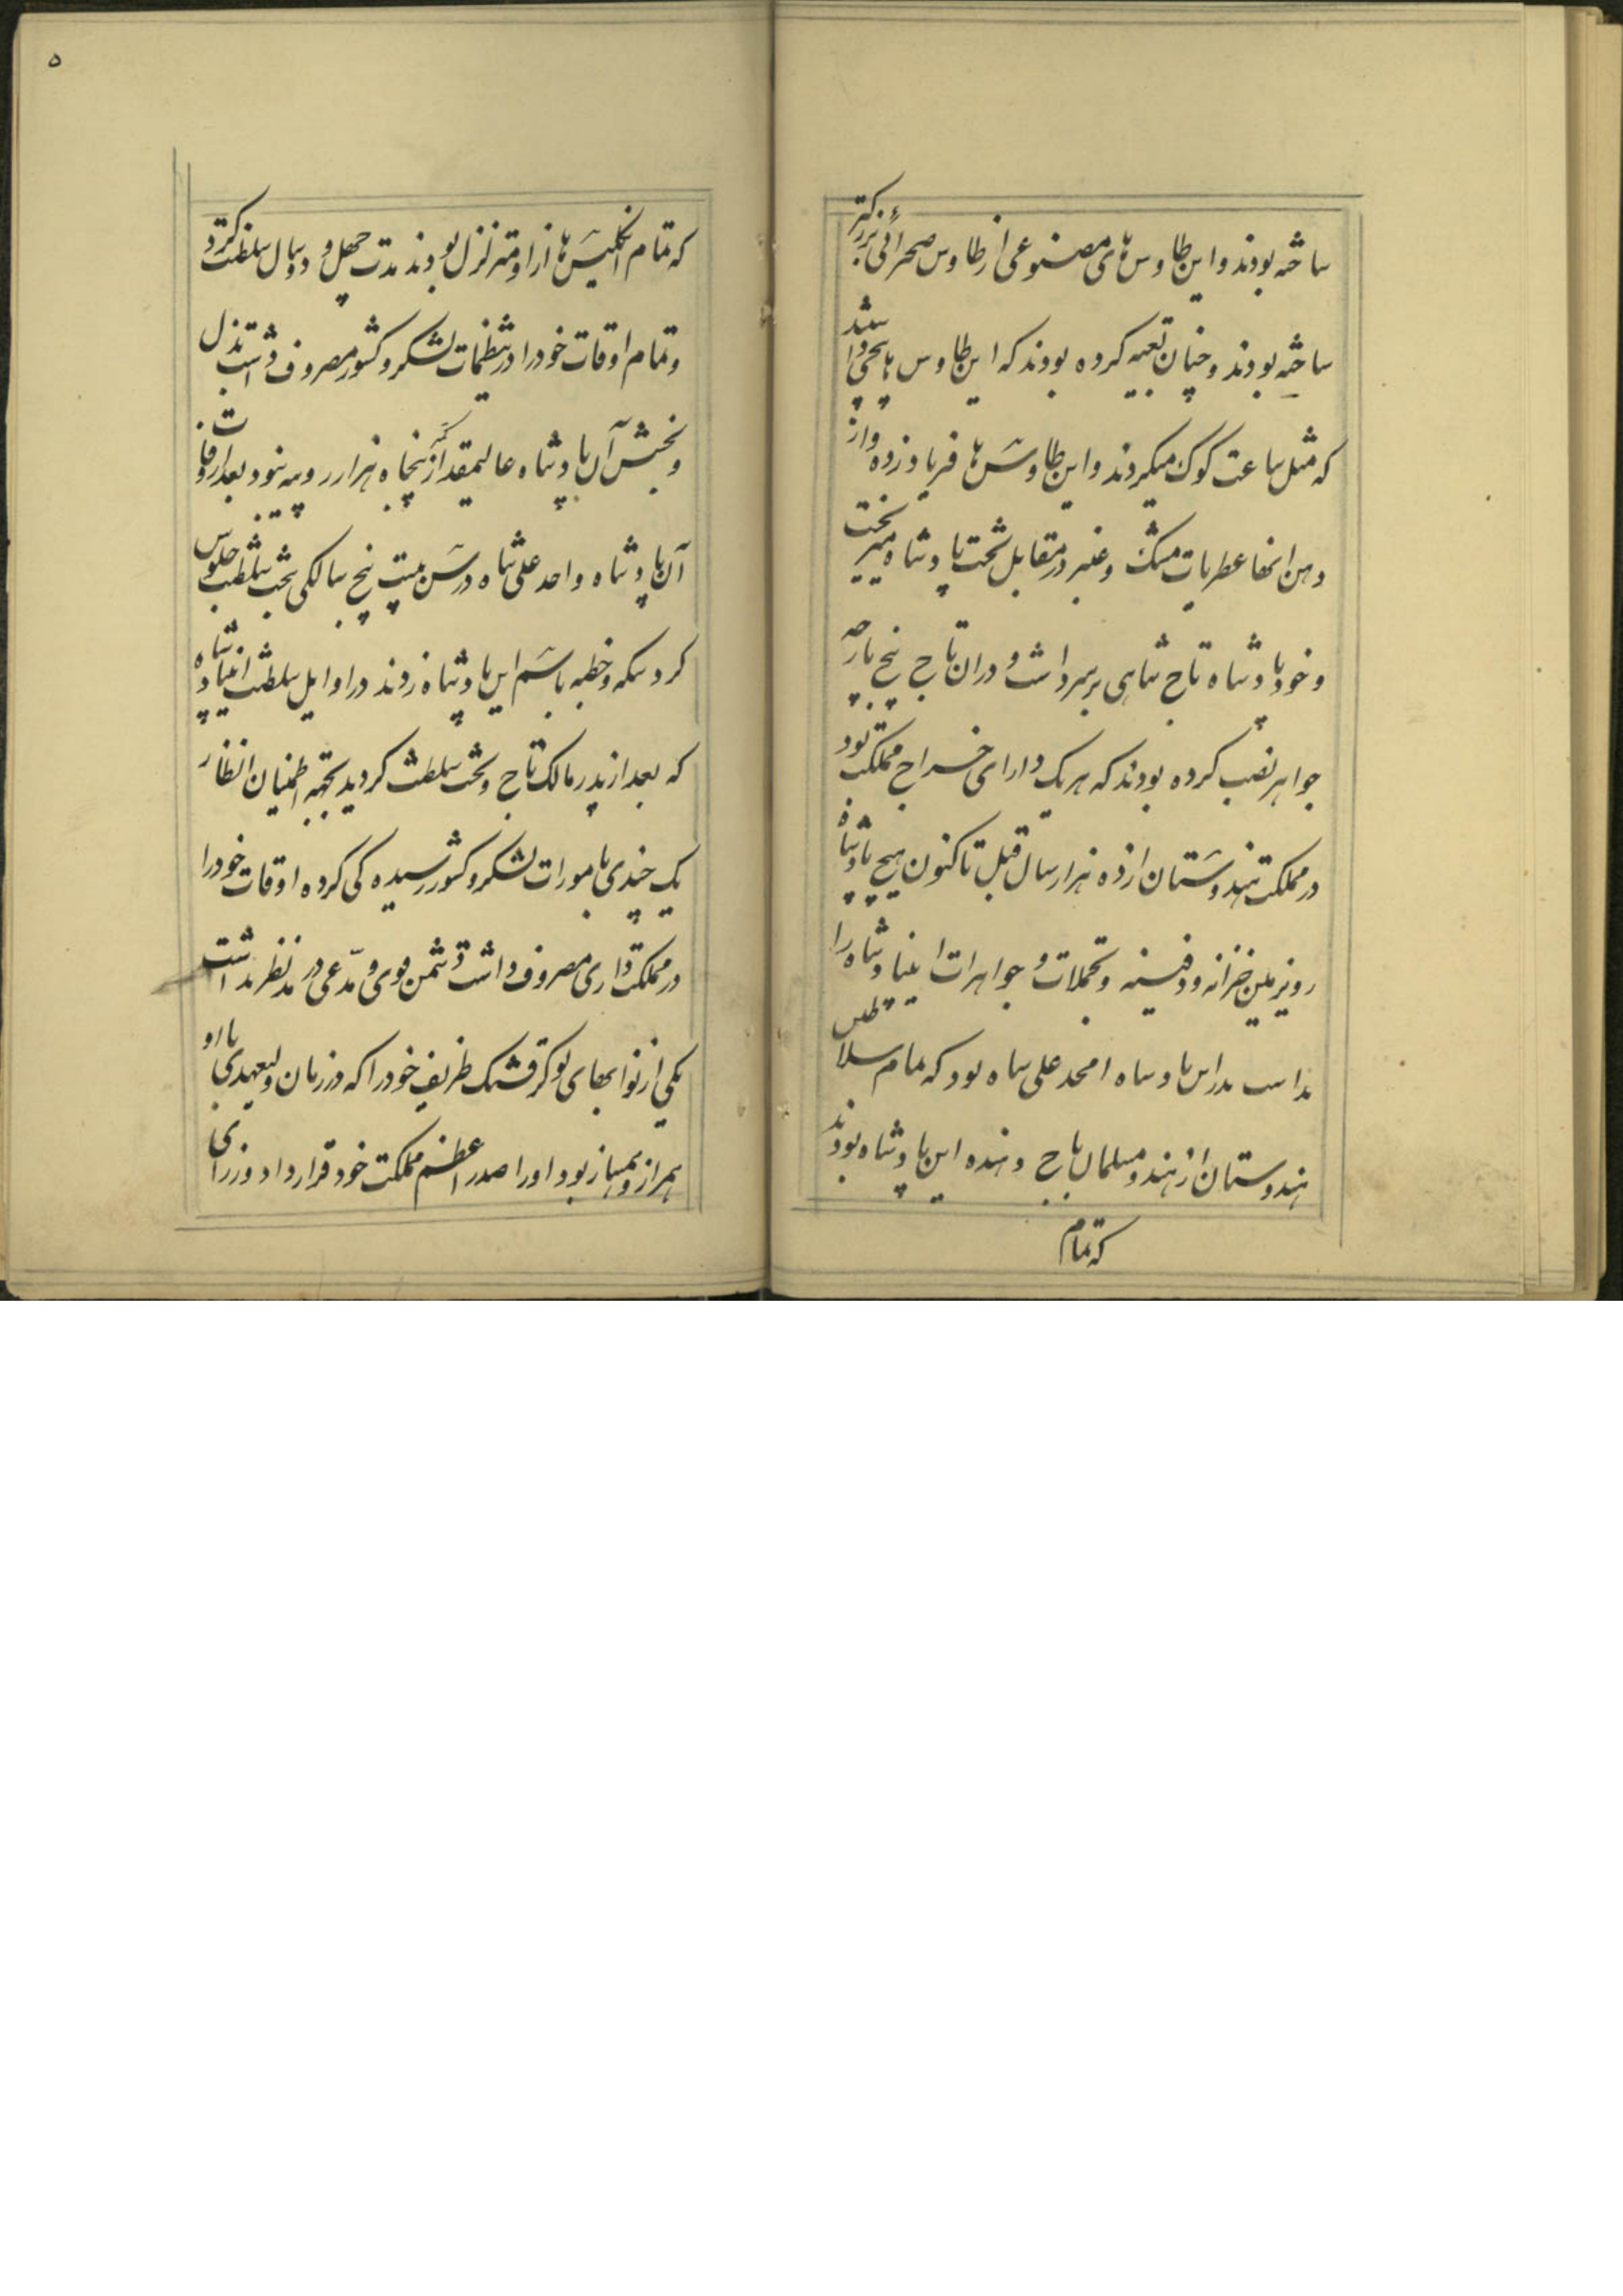 ساخته بودند و این طاوس های مصنوعی از طاوس صحرائی بزرگتر
ساخته بودند و چنان تعبیه کرده بودند که این طاوس ها
که مثل ساعت کوک میکردند و این طاوس ها فریاد زده و از
دهن انها عطریات مشک و عنبر در مقابل تخت پادشاه میریخت
و خود پادشاه تاج شاهی بر سر داشت و در ان تاج پنج پارچه
جواهر نصب کرده بودند که هر یک دارای خراج مملکت بود
در مملکت هندوستان از ده هزار سال قبل تا کنون هیچ پادشاه
روی زمین خزانه و دفینه و تجملات و جواهرات این پادشاه را
نداشت پدر این پادشاه امجد علی شاه بود که تمام سلاطین
هندوستان از هند و مسلمان باج دهنده این پادشاه بودند
که تمام
۵
که تمام انگلیس ها از او متزلزل بودند مدت چهل و دو سال سلطنت کرد
و تمام اوقات خود را در تنظیمات لشکر و کشور مصروف داشت بذل
و بخشش آن پادشاه عالیمقدار کمتر از پنجاه هزار روپیه نبود بعد از وفات
آن پادشاه واحد علی شاه در سن بیست پنج سالگی بتخت سلطنت جلوس
کرد سکه و خطبه باسم این پادشاه زدند در اوایل سلطنت این پادشاه
که بعد از پدر مالک تاج و تخت سلطنت گردید بجهة اطمینان انظار
یک چندی بامورات لشکر و کشور رسیده گی کرده اوقات خود را
در مملکت داری مصروف داشت دشمن قوی و مدّعی در مد نظر نداشت
یکی از نوابهای نوکر قشنگ ظریف خود را که در زمان ولیعهدی با او
همراز و بود او را صدر اعظم مملکت خود قرار داد وزرای